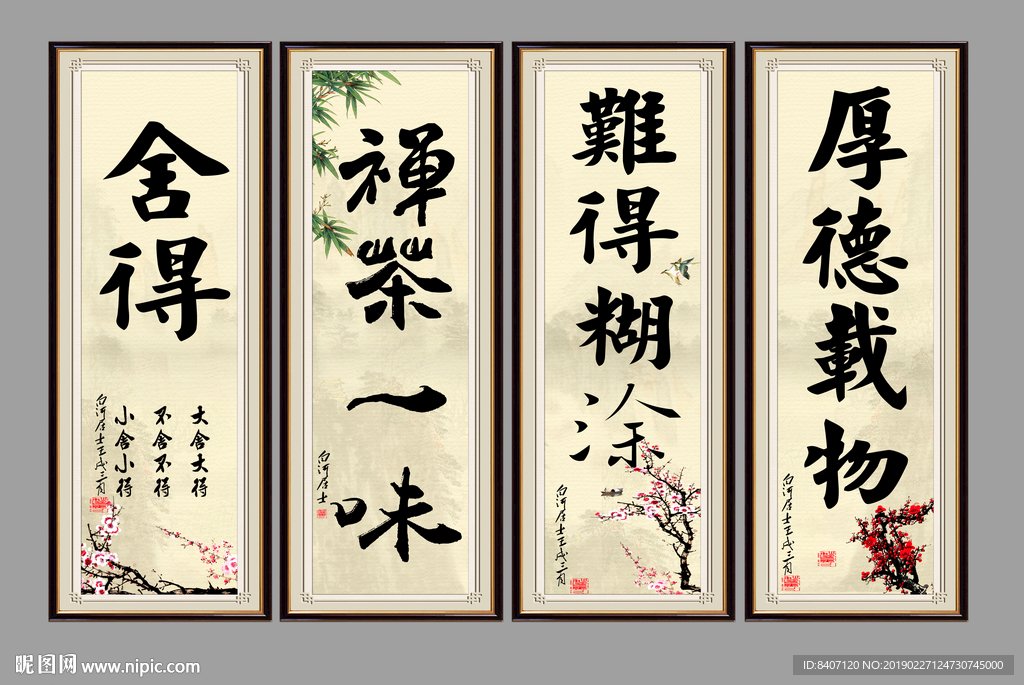 舍得
大舍大得
不舍不得
小舍小得
白河居士壬戌三月
禅茶一味
白河居士
難得糊涂
白河居士壬戌三月
厚德載物
白河居士壬戌三月
昵图网 www.nipic.com
ID:8407120 NO:20190227124730745000